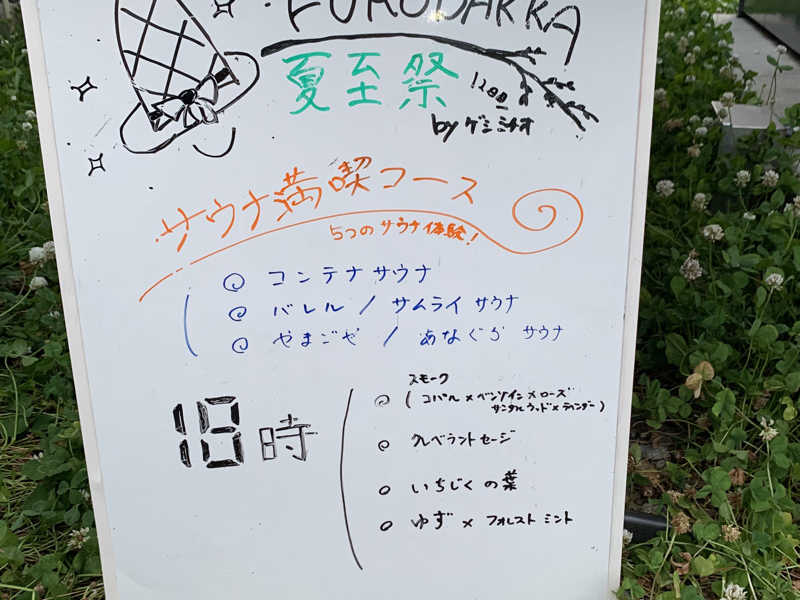 FUROBAKKA
夏至祭
by ゲシミナオ
サウナ満喫コース
5つのサウナ体験!
コンテナサウナ
バレル / サムライサウナ
やまごや / あなぐらサウナ
18時
スモーク
(コパル×ベンゾイン×ローズ
サンダルウッド×ラベンダー)
クレベラントセージ
いちじくの葉
ゆず×フォレストミント